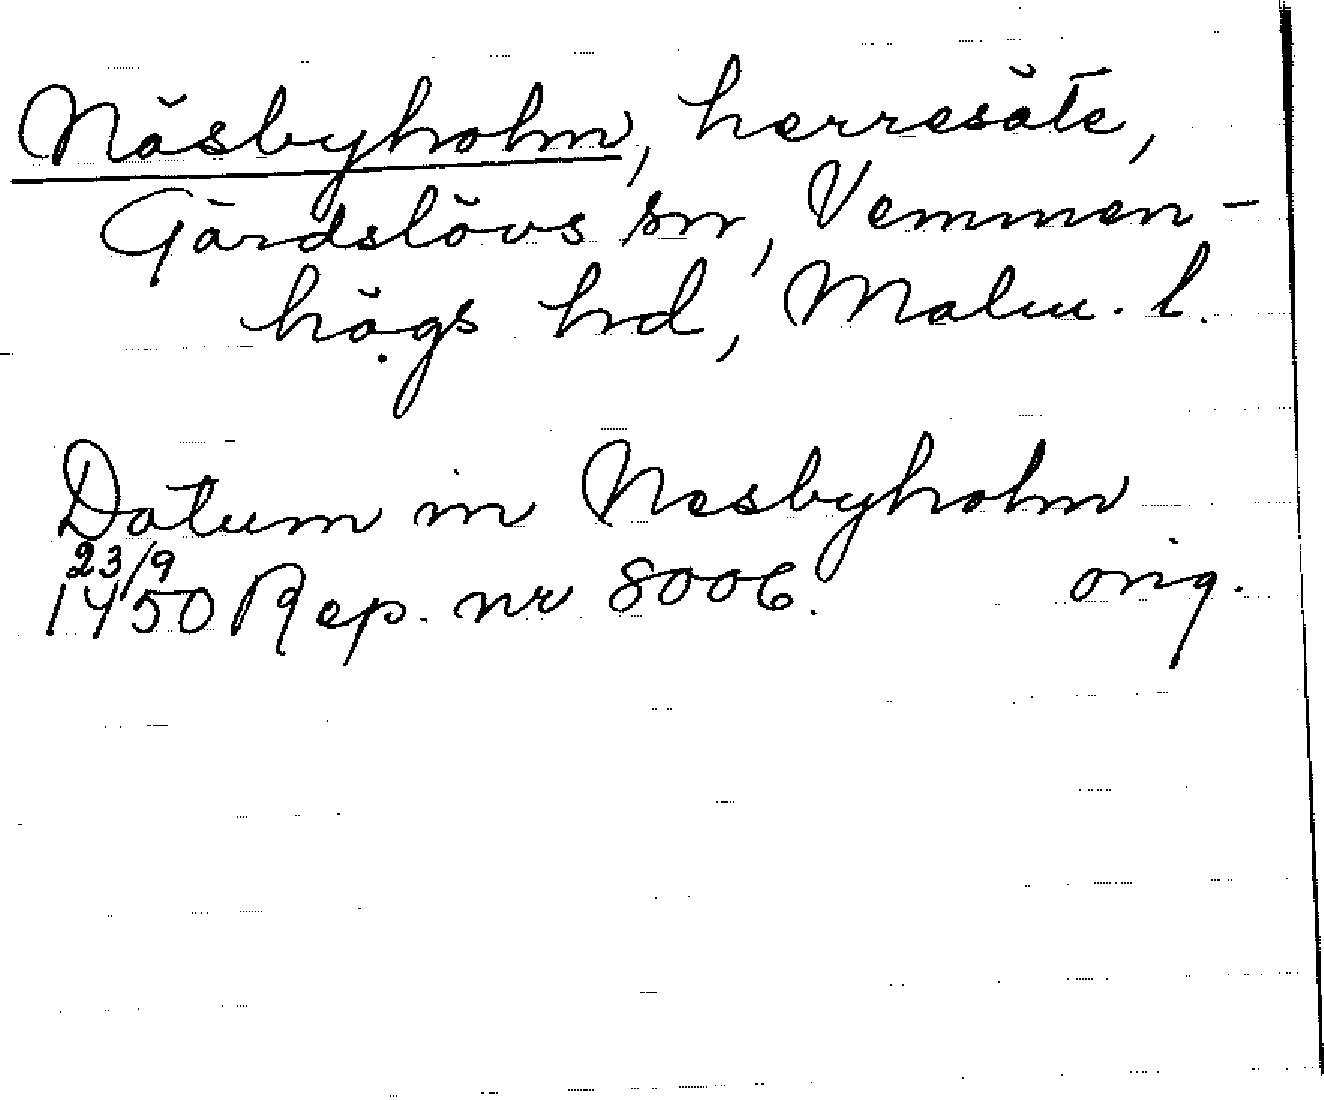 Näsbyholm, herresäte,
Gärdslövs sn, Vemmen-
högs hrd, Malm. l.
Datum in Nesbyholm
23/9
1450 Rep. nr 8006. orig.